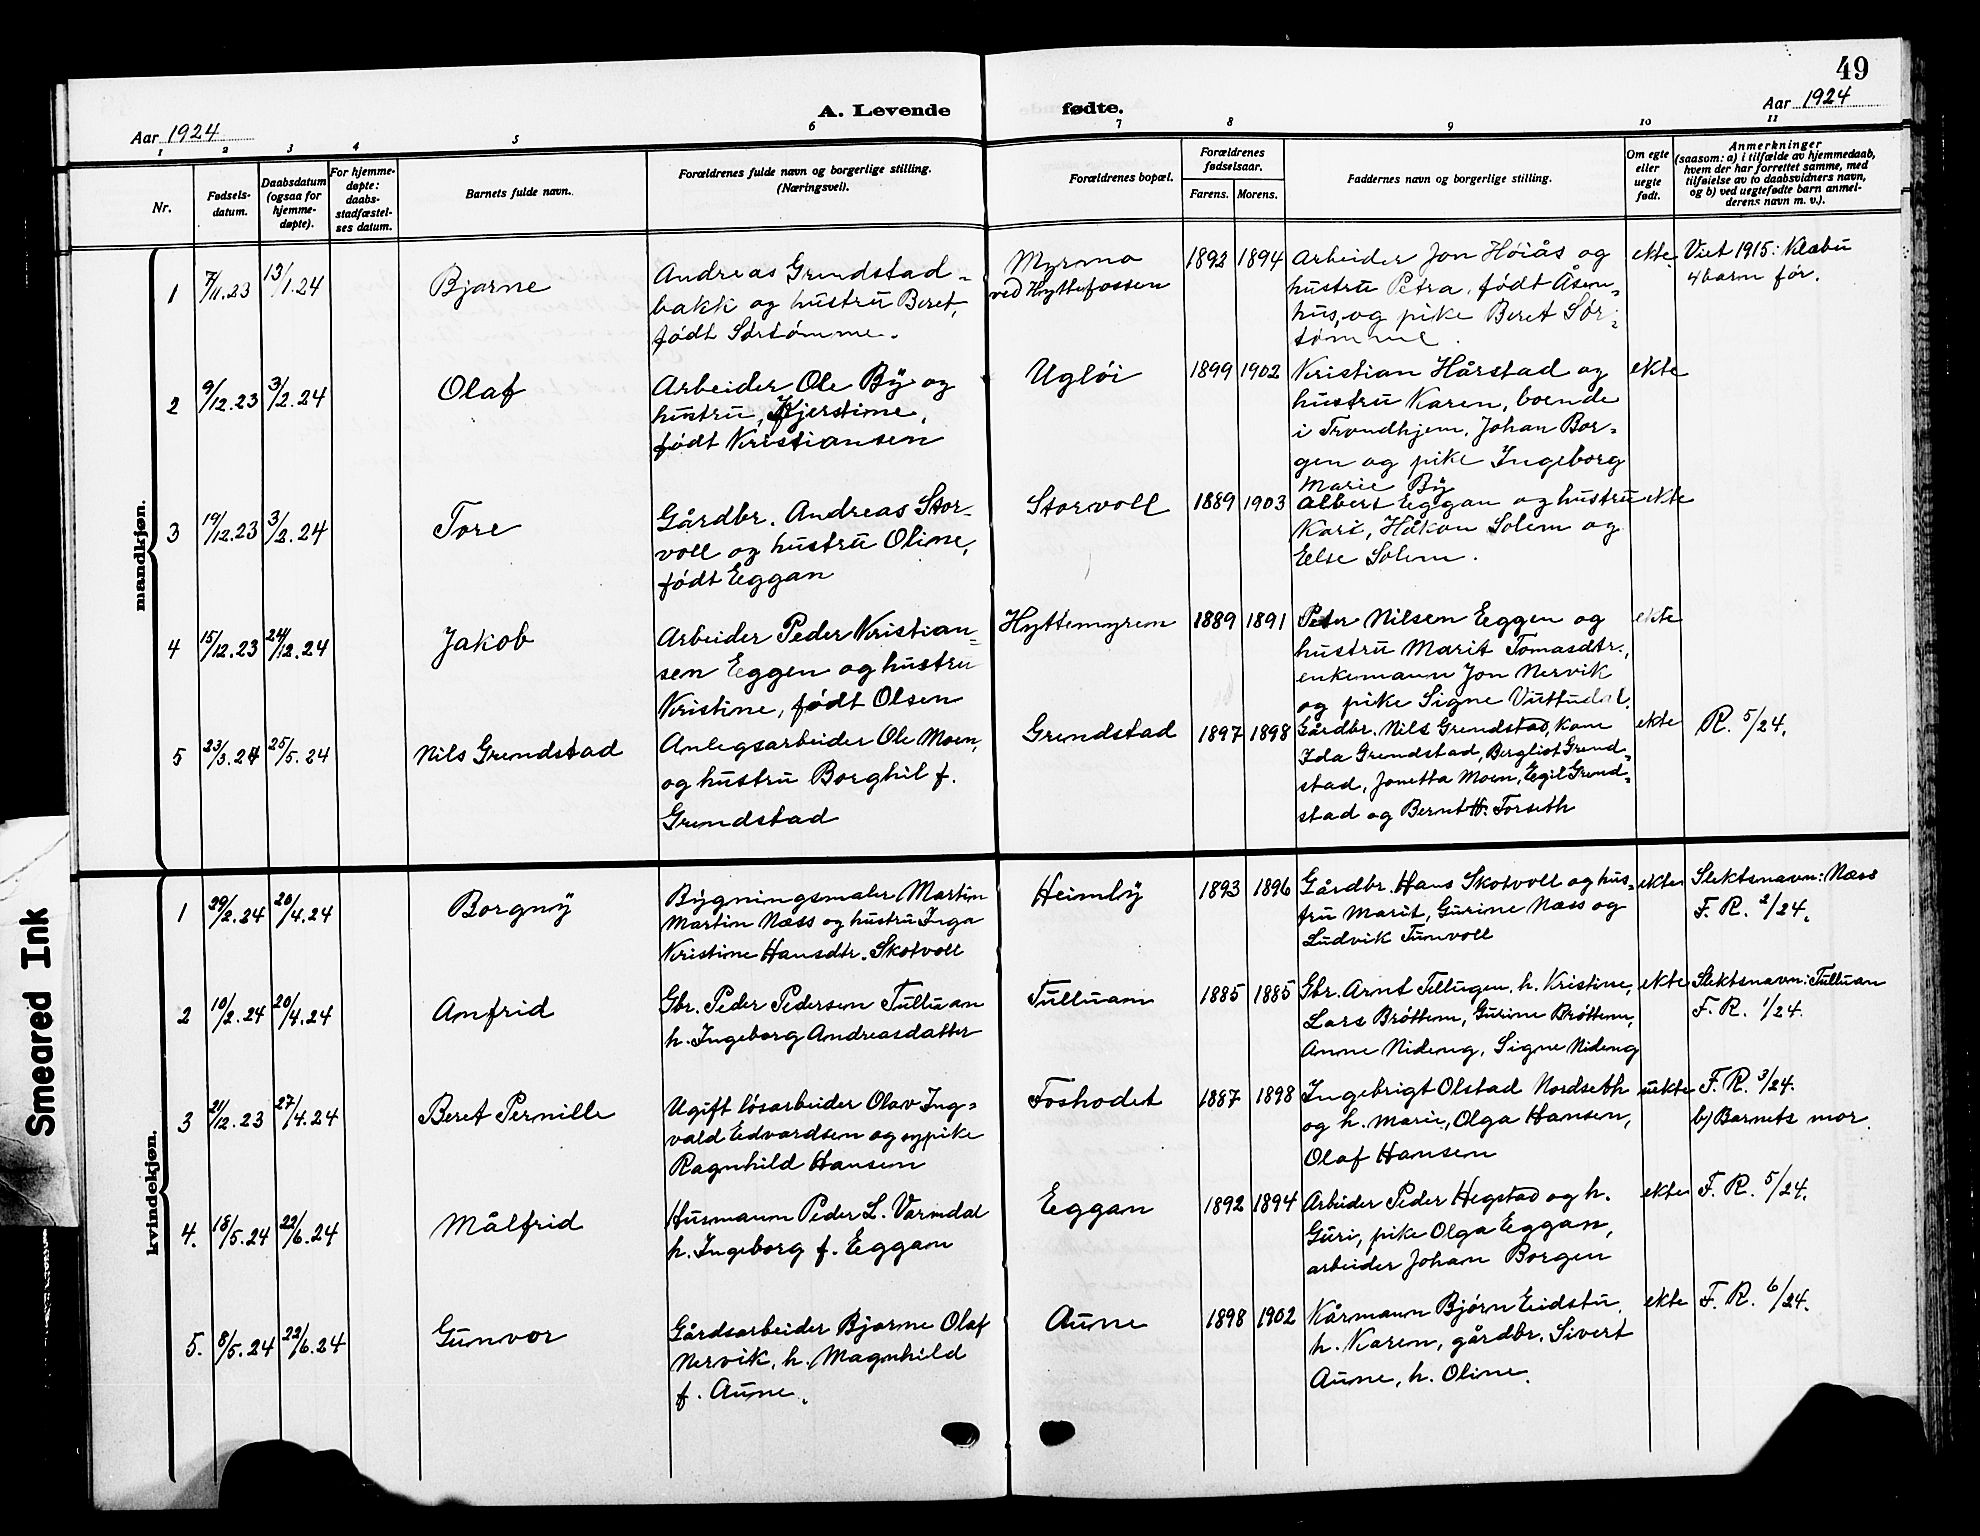 49
A. Levende fødte.
Aar 1924
Aar 1924
1 2 3 4 5 6 7 8 9 10 11
Nr.
Fødsels-
datum.
Daabsdatum
(ogsaa for
hjemme-
døpte).
For hjemme-
døpte:
daabs-
stadfæstel-
ses datum.
Barnets fulde navn.
Forældrenes fulde navn og borgerlige stilling.
(Næringsvei).
Forældrenes bopæl.
Forældrenes
fødselsaar.
Farens. Morens.
Faddernes navn og borgerlige stilling.
Om egte
eller
uegte
født.
Anmerkninger
(saasom: a) i tilfælde av hjemmedaab,
hvem der har forrettet samme, med
tilføielse av to daabsvidners navn,
og b) ved uegtefødte barn anmel-
derens navn m. v.).
mandkjøn.
1 7/11.23 13/1.24 Bjarne
Andreas Grendstad-
bakk og hustru Beret,
født Sørtømme.
Myrmo
ved Hyttefossen
1892 1894
Arbeider Jon Høiås og
hustru Petra, født Åsen-
hus, og pike Beret Sør-
tømme.
ekte
Viet 1915: Klæbu
4 barn før.
2 9/12.23 3/2.24 Olaf
Arbeider Ole By og
hustru, Kjerstine,
født Kristiansen
Ugløi
1899 1902
Kristian Hårstad og
hustru Karen, boende
i Trondhjem, Johan Bor-
gen og pike Ingeborg
Marie By
ekte
3 19/12.23 3/2.24 Tore
Gårdbr. Andreas Stor-
voll og hustru Oline,
født Eggan
Storvoll
1889 1903
Albert Eggan og hustru
Kari, Håkon Solem og
Else Solem.
ekte
4 15/12.23 24/12.24 Jakob
Arbeider Peder Kristian-
sen Eggen og hustru
Kristine, født Olsen
Hyttemyren
1889 1891
Peter Nilsen Eggen og
hustru Marit Tomasdtr.,
enkemann Jon Nervik
og pike Signe Vuttudal.
ekte
5 23/3.24 25/5.24 Nils Grendstad
Anlegsarbeider Ole Moen,
og hustru Borghil f.
Grendstad
Grendstad
1897 1898
Gårdbr. Nils Grendstad, kone
Ida Grendstad, Bergliot Grend-
stad, Jonetta Moen, Egil Grend-
stad og Bernt H. Forseth
ekte
R. 5/24.
kvindekjøn.
1 29/2.24 20/4.24 Borgny
Bygningsmaler Martin
Martin Næss og hustru Inga
Kristine Hansdtr. Skotvoll
Heimly
1893 1896
Gårdbr. Hans Skotvoll og hus-
tru Marit, Gurine Næss og
Ludvik Tunvoll
ekte
Slektsnavn: Næss
F. R. 2/24.
2 10/2.24 20/4.24 Anfrid
Gbr. Peder Pedersen Tulluan
h. Ingeborg Andreasdatter
Tulluan
1885 1885
Gbr. Arnt Tellugen, h. Kristine,
Lars Brøttem, Gurine Brøttem,
Anne Nideng, Signe Nideng
ekte
Slektsnavn: Tulluan
F. R. 1/24.
3 21/12.23 27/4.24 Beret Pernille
Ugift løsarbeider Olav Ing-
vald Edvardsen og sypike
Ragnhild Hansen
Foshodet
1887 1898
Ingebrigt Olstad Nordseth
og h. Marie, Olga Hansen,
Olaf Hansen
uekte
F. R. 3/24.
b) Barnets mor.
4. 18/5.24 22/6.24 Målfrid
Husmann Peder L. Varmdal
h. Ingeborg f. Eggan
Eggan
1892 1894
Arbeider Peder Hegstad og h.
Guri, pike Olga Eggan,
arbeider Johan Borgen
ekte
F. R. 5/24.
5. 8/5.24 22/6.24 Gunvor
Gårdsarbeider Bjarne Olaf
Nervik, h. Magnhild
f. Aune.
Aune
1898 1902
Kårmann Bjørn Eidstu,
h. Karen, gårdbr. Sivert
Aune, h. Oline.
ekte
F. R. 6/24.
Smeared Ink